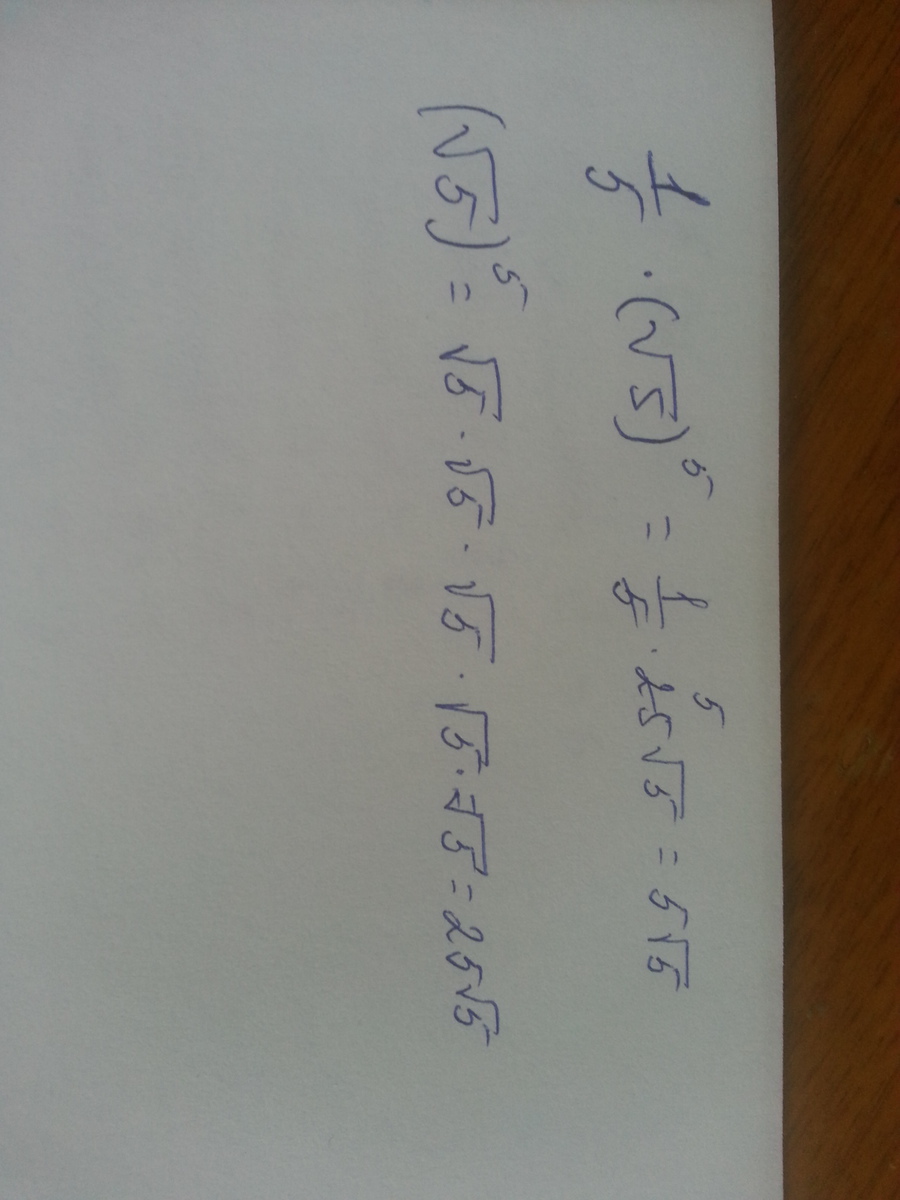 1/5 · (√5)⁵ = 1/5 · 25⁵√5 = 5√5
(√5)⁵ = √5 · √5 · √5 · √5 · √5 = 25√5